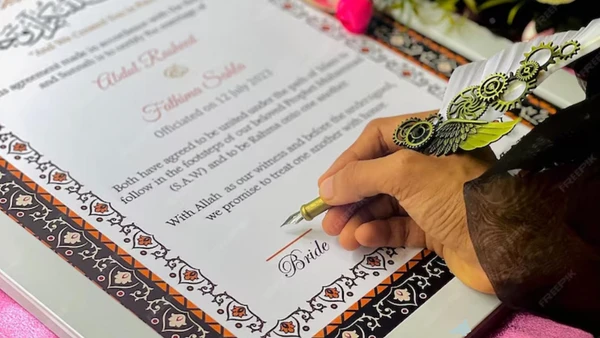 "And We Created You in
agreement made in accordance with the
and Sunnah is to certify the marriage of
Abdul Rasheed
&
Fathima Suhla
Officiated on 12 July 2023
Both have agreed to be united under the path of Islam to
follow in the footsteps of our beloved Prophet Muhammad
(S.A.W) and to be Rahma onto one another
With Allah as our witness and before the undersigned,
we promise to treat one another with
Bride
FREEPIK